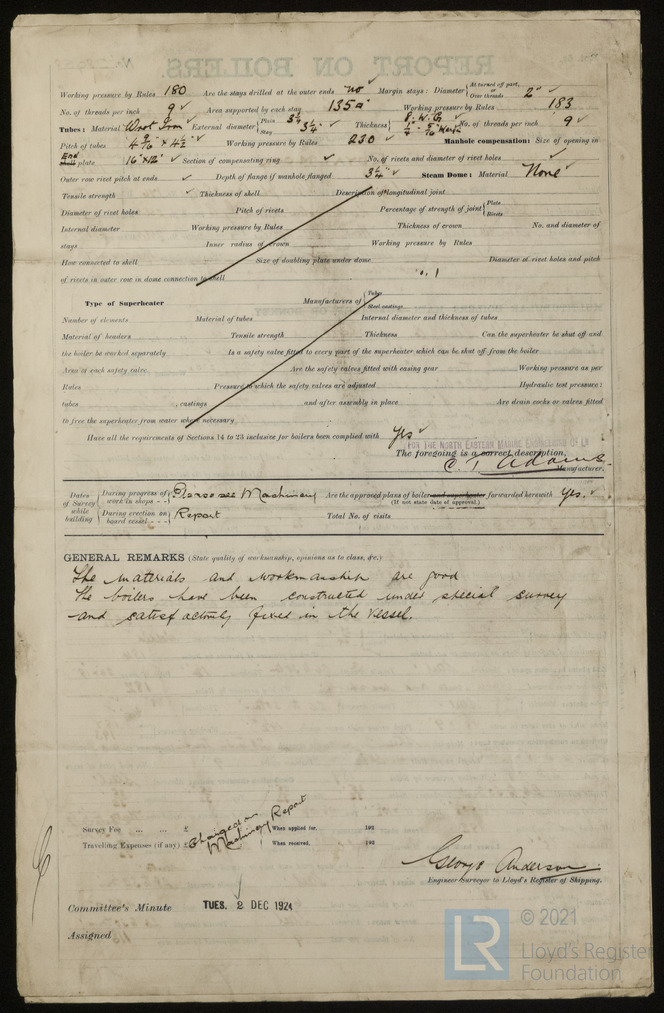 REPORT ON BOILERS.
Working pressure by Rules 180 Are the stays drilled at the outer ends no ✓ Margin stays: Diameter { At turned off part, or Over threads 2" ✓
No. of threads per inch 9 ✓ Area supported by each stay 135▫" Working pressure by Rules 183
Tubes: Material Wrot Iron ✓ External diameter { Plain 3¼ Stay 3¼" ✓ Thickness { 8. W. G. ¼" - 5/16" No. of threads per inch 9 ✓
Pitch of tubes 4 9/16" × 4½" ✓ Working pressure by Rules 230 ✓ Manhole compensation: Size of opening in
End plate 16" × 12" ✓ Section of compensating ring ✓ No. of rivets and diameter of rivet holes ✓
Outer row rivet pitch at ends ✓ Depth of flange if manhole flanged 3¼" ✓ Steam Dome: Material None ✓
Tensile strength ✓ Thickness of shell Description of longitudinal joint
Diameter of rivet holes Pitch of rivets Percentage of strength of joint { Plate Rivets
Internal diameter Working pressure by Rules Thickness of crown No. and diameter of
stays Inner radius of crown Working pressure by Rules
How connected to shell Size of doubling plate under dome Diameter of rivet holes and pitch
of rivets in outer row in dome connection to shell
Type of Superheater Manufacturers of { Tubes Steel castings
Number of elements Material of tubes Internal diameter and thickness of tubes
Material of headers Tensile strength Thickness Can the superheater be shut off and
the boiler be worked separately Is a safety valve fitted to every part of the superheater which can be shut off from the boiler
Area of each safety valve Are the safety valves fitted with easing gear Working pressure as per
Rules Pressure to which the safety valves are adjusted Hydraulic test pressure:
tubes , castings and after assembly in place Are drain cocks or valves fitted
to free the superheater from water where necessary
Have all the requirements of Sections 14 to 23 inclusive for boilers been complied with Yes ✓
FOR THE NORTH EASTERN MARINE ENGINEERING Co Ld
The foregoing is a correct description,
C. T. Adams Manufacturer.
Dates of Survey while building { During progress of work in shops - - { Please see Machinery Are the approved plans of boiler and superheater forwarded herewith Yes. ✓
(If not state date of approval.)
During erection on board vessel - - - { Report Total No. of visits
GENERAL REMARKS (State quality of workmanship, opinions as to class, &c.)
The materials and workmanship are good
The boilers have been constructed under special survey
and satisfactorily fixed in the vessel.
Survey Fee ... ... £ Charged on When applied for, 192
Travelling Expenses (if any) £ Machinery Report When received, 192
George Anderson
Engineer Surveyor to Lloyd's Register of Shipping.
Committee's Minute TUES. 2 DEC 1924
Assigned
LR © 2021
Lloyd's Register
Foundation